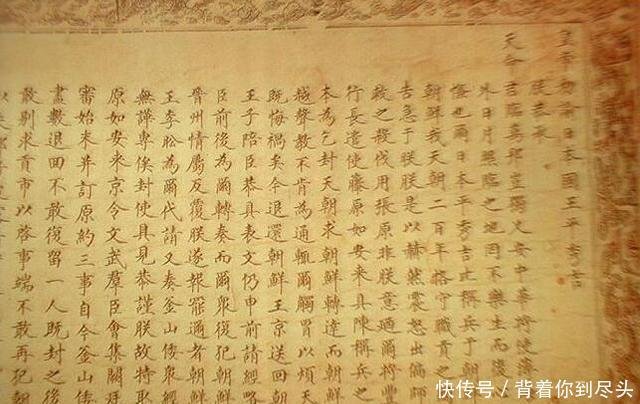 皇帝勅諭日本國王平秀吉
朕恭承
天命君臨萬邦豈獨乂安中華將使薄
外日月照臨之地罔不樂生而後
愜也爾日本平秀吉比稱兵于朝
朝鮮我天朝二百年恪守職貢之
吉急于朕朕是以赫然震怒出偏師
救之殺伐用張原非朕意迺爾將豐
行長遣使藤原如安來具陳稱兵之
本為乞封天朝求朝鮮轉達而朝鮮
越聲教不肯為通輒爾觸冒以煩天
既悔禍矣今退還朝鮮王京送回
王子陪臣恭具表文仍申前請經略
臣前後為爾轉奏而爾眾復犯朝鮮
晉州情屬反覆朕遂報罷邇者朝鮮
王李昖為爾代請又奏釜山倭眾
無譁專俟封使具見恭謹朕故特取
原如安來京令文武羣臣會集闕廷
審始末并訂原約三事自今釜山倭
盡數退回不敢復留一人既封之後
敢別求貢市以啓事端不敢再犯朝
快传号/背着你到尽头